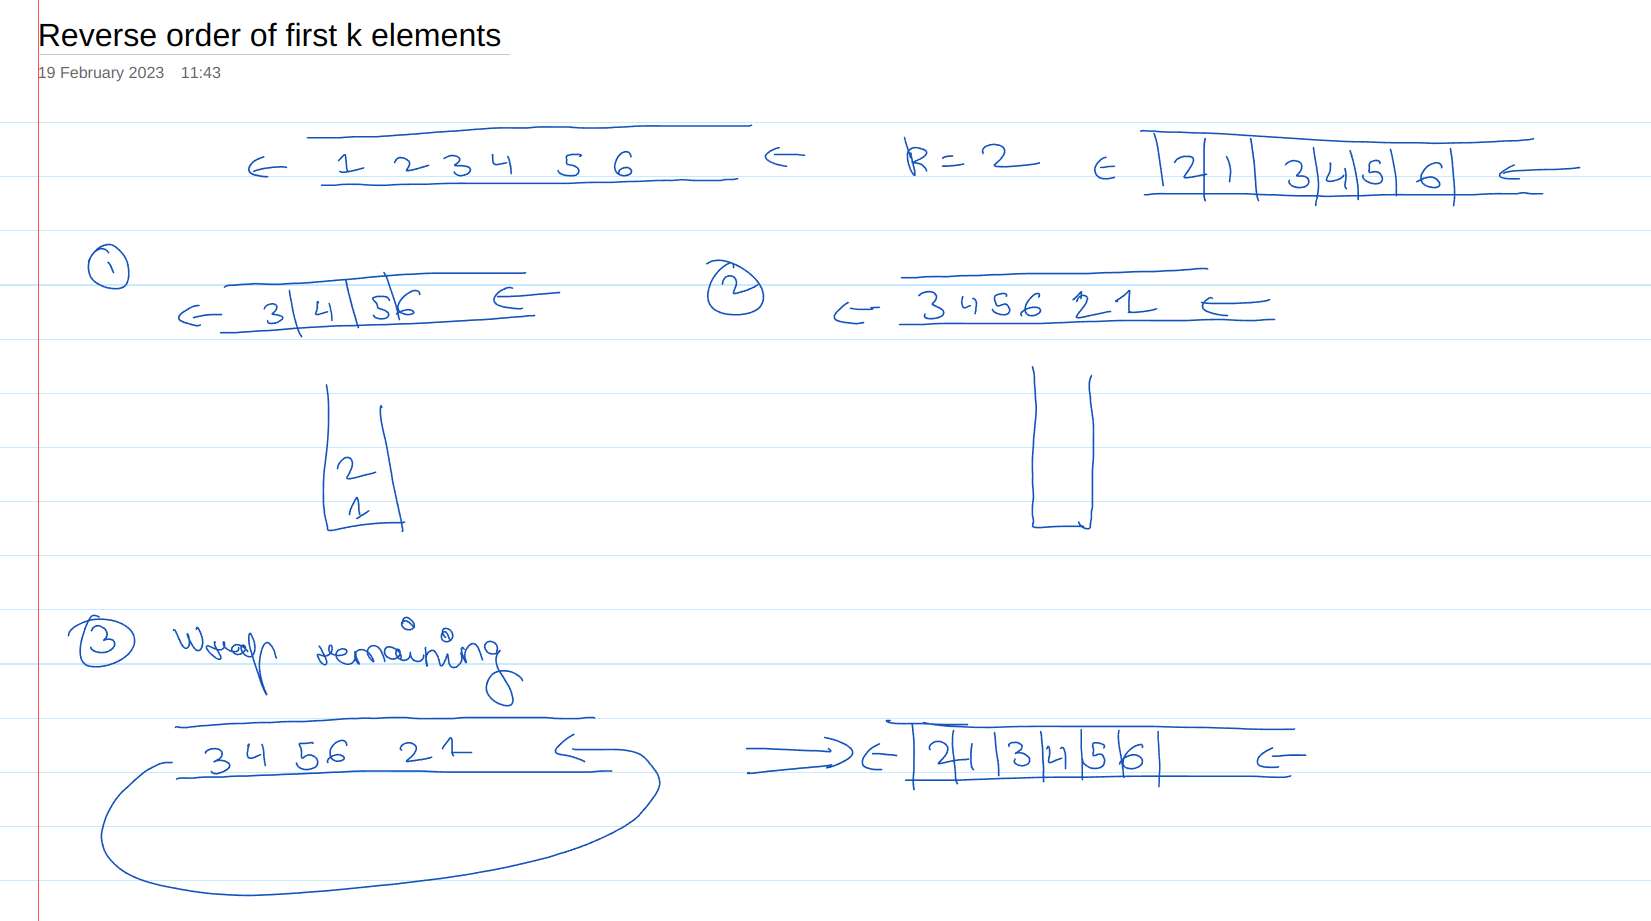 Reverse order of first k elements
19 February 2023 11:43
← 1 2 3 4 5 6 ← K = 2 ← 2 1 3 4 5 6 ←
1 ← 3 4 5 6 ← 2 ← 3 4 5 6 2 1 ←
2
1
3 Wrap remaining
3 4 5 6 2 1 ← ⇒ ← 2 1 3 4 5 6 ←